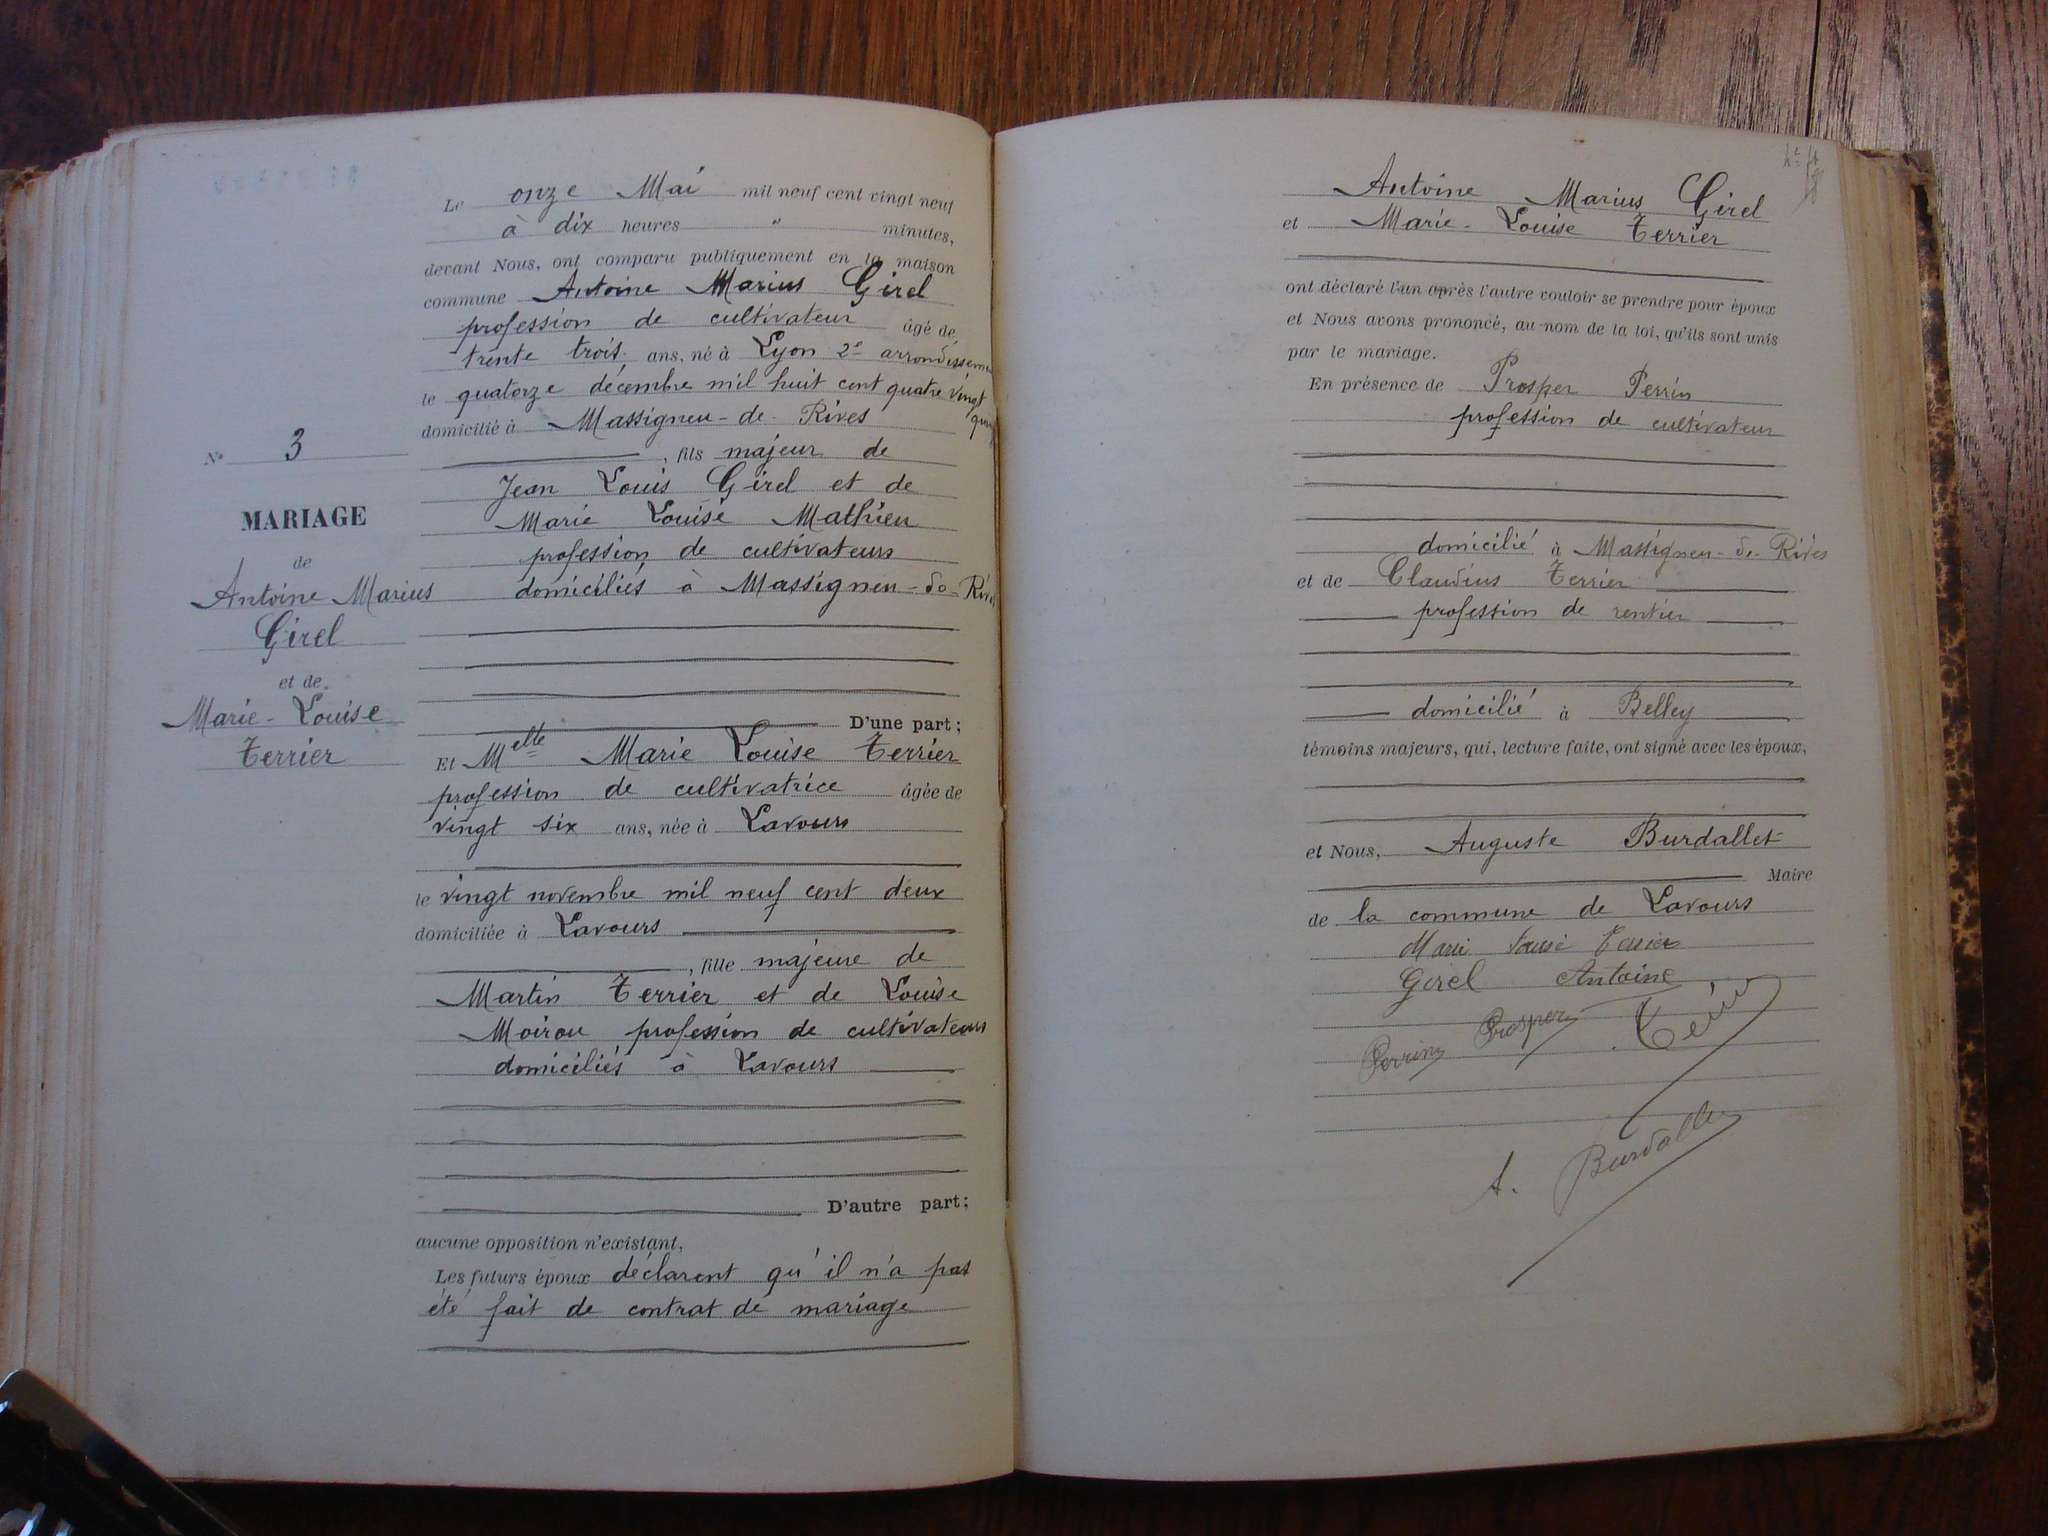 Nº 3
MARIAGE
de
Antoine Marius
Girel
et de
Marie-Louise
Terrier
Le onze Mai mil neuf cent vingt neuf
à dix heures " minutes,
devant Nous, ont comparu publiquement en la maison
commune Antoine Marius Girel
profession de cultivateur âgé de
trente trois ans, né à Lyon 2e
le quatorze décembre mil huit cent quatre vingt
domicilié à Massigneu-de-Rives
, fils majeur de
Jean Louis Girel et de
Marie Louise Mathieu
profession de cultivateurs
domiciliés à Massigneu-de-Rives
D'une part;
Et Melle Marie Louise Terrier
profession de cultivatrice âgée de
vingt six ans, née à Lavours
le vingt novembre mil neuf cent deux
domiciliée à Lavours
, fille majeure de
Martin Terrier et de Louise
Moirou profession de cultivateurs
domiciliés à Lavours
D'autre part;
aucune opposition n'existant,
Les futurs époux déclarent qu'il n'a pas
été fait de contrat de mariage
Antoine Marius Girel
et Marie-Louise Terrier
ont déclaré l'un après l'autre vouloir se prendre pour époux
et Nous avons prononcé, au nom de la loi, qu'ils sont unis
par le mariage.
En présence de Prosper Perrin
profession de cultivateur
domicilié à Massigneu-de-Rives
et de Claudius Terrier
profession de rentier
domicilié à Belley
témoins majeurs, qui, lecture faite, ont signé avec les époux,
et Nous, Auguste Burdallet
Maire
de la commune de Lavours
Marie Louise Terrier
Girel Antoine
Perrin Prosper
A. Burdallet